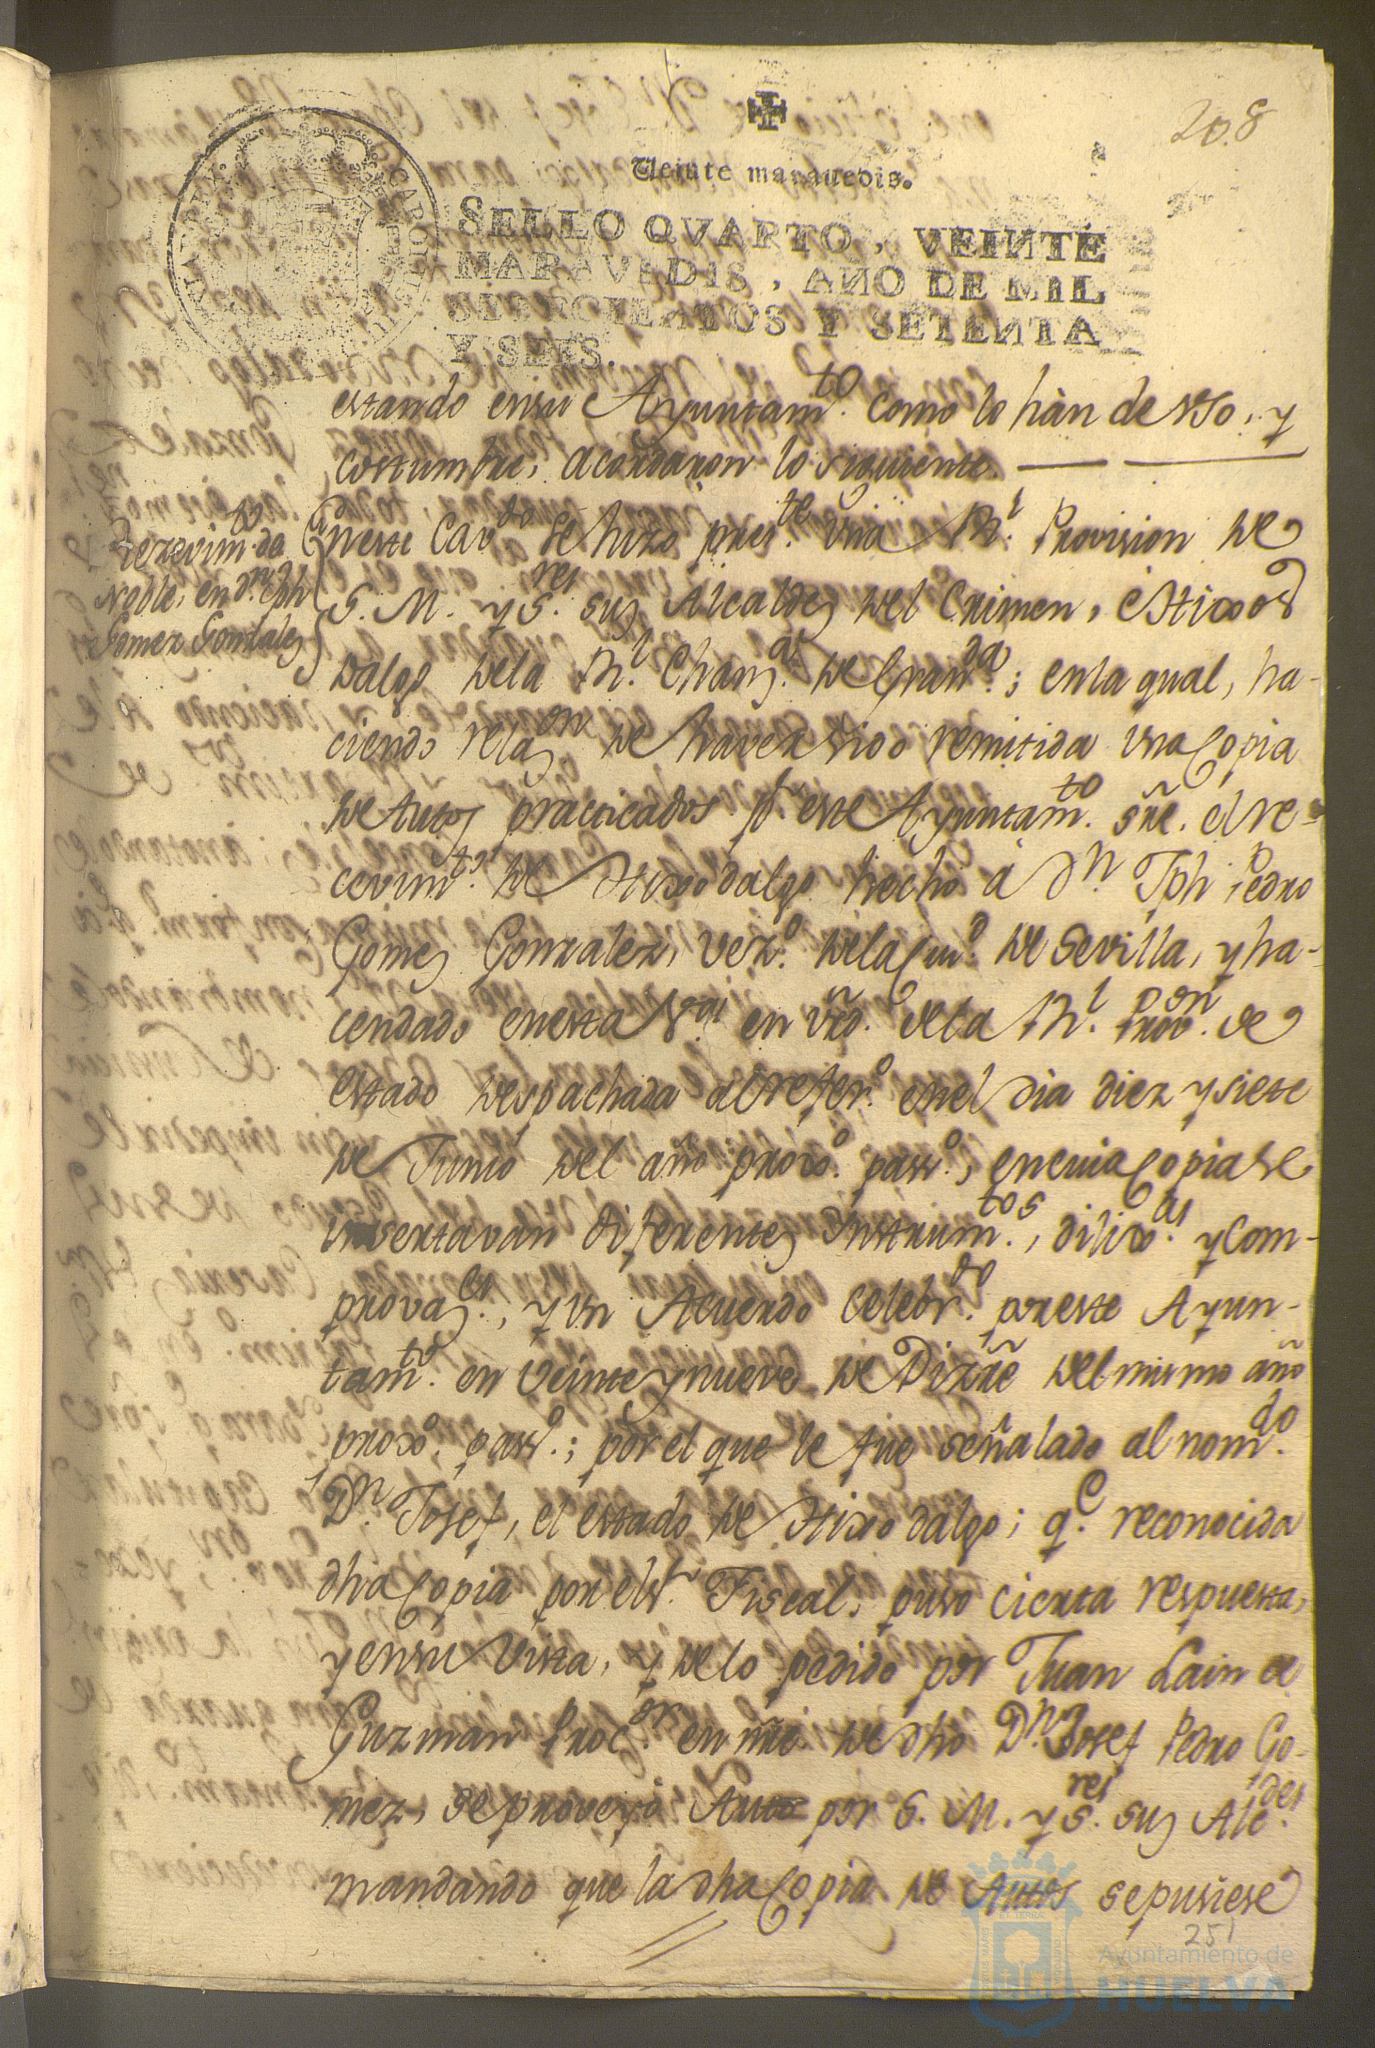 208
Veinte marauedis.
SELLO QVARTO, VEINTE
MARAVEDIS, AÑO DE MIL
SETECIENTOS Y SETENTA
Y SEIS.
estando ensu Ayuntamto. como lo hàn de vso, y
costumbre, acordaron lo siguiente.
Rezevimto. de
noble, en Dn. Jph
Gomez Gonzalez
Eneste Cavdo. se hizo preste. vna Rl. Provision de
S. M. y Sres. sus Alcaldes del Crimen, è Hixos
dalgo dela Rl. Chanza. de Granda.; enla qual, ha-
ciendo relazon de haver sido remitida vna Copia
de Autos practicados pr. este Ayuntamto. sre. el re-
cevimto. de Hixodalgo hecho à Dn. Jph Pedro
Gomez Gonzalez, vezo. dela Ciud. de Sevilla, y ha-
cendado enesta Va. en vrd. dela Rl. Provon. de
estado despachada alrefero. enel dia diez y siete
de Junio del año proxo. passo., encuia Copia se
insertavan diferentes Instrumtos., dilixas. y Com-
provazes., y vn Acuerdo Celebrdo. poreste Ayun-
tamto. en veinte y nueve de Dizre. del mismo año
proxo. passo.; por el que le fue señalado al nomdo.
Dn. Josef, el estado de Hixo dalgo; qe. reconocida
dha Copia por elSr. Fiscal, puso cierta respuesta,
y ensu Vista, y de lo pedido por Juan Lain de
Guzman Procor. en nre. de dho Dn. Josef Pedro Go-
mez, se proveyò Auto por S. M. y Sres. sus Alcdes.
mandando que la dha Copia de Autos sepusiese
251
Ayuntamiento de
HUELVA